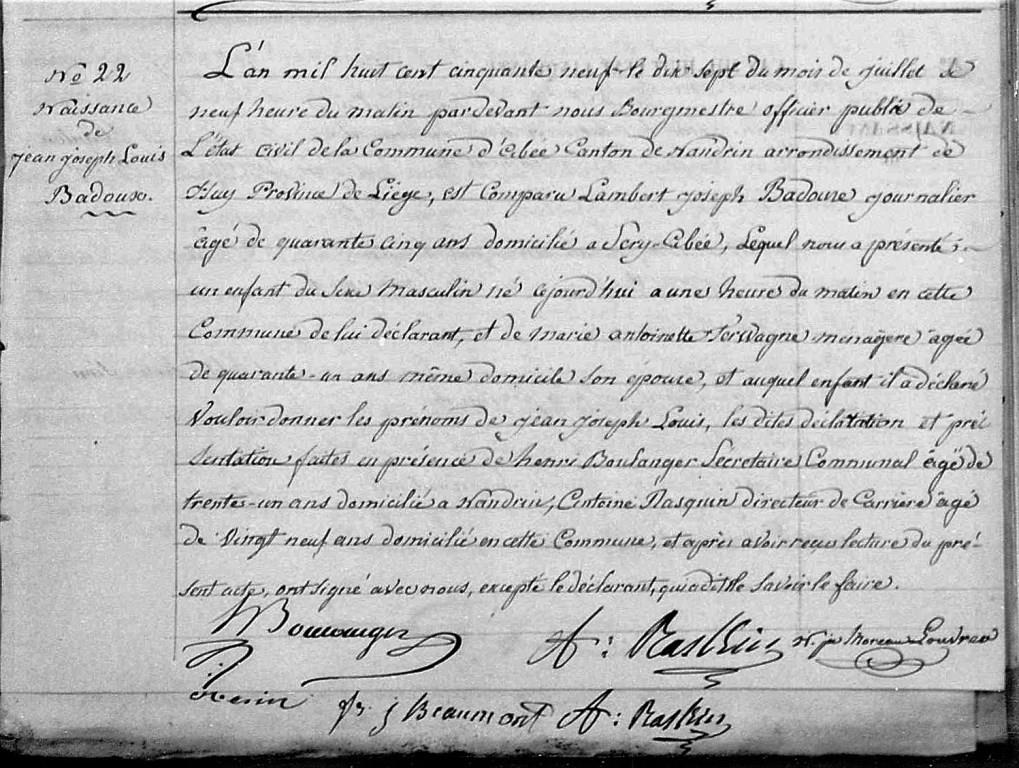 No 22
Naissance
de
jean joseph Louis
Badoux.
L'an mil huit cent cinquante neuf le dix sept du mois de juillet à
neuf heure du matin pardevant nous Bourgmestre officier public de
L'état Civil de la Commune d'abée Canton de Nandrin arrondissement de
Huy Province de Liége, est Comparu Lambert joseph Badoux journalier
âgé de quarante cinq ans domicilié a Scry-abée, Lequel nous a présenté
un enfant du sexe masculin né ajourd'hui a une heure du matin en cette
Commune de lui déclarant, et de marie antoinette Servagne menagere âgée
de quarante-un ans même domicile son épouse, et auquel enfant il a déclaré
Vouloir donner les prénoms de jean joseph Louis, les dites déclatation et pré
sentation faites en présence de henri Boulanger Secretaire Communal âgé de
trente-un ans domicilié a Nandrin, antoine Rasquin directeur de Carrière âgé
de Vingt neuf ans domicilié en cette Commune, et après avoir reçu lecture du pré-
sent acte, ont signé avec nous, excepté le déclarant, qui a dit ne savoir le faire.
H Boulanger
A: Raskin
N. j. Moreau Louvrex
j Beaumont A: Raskin